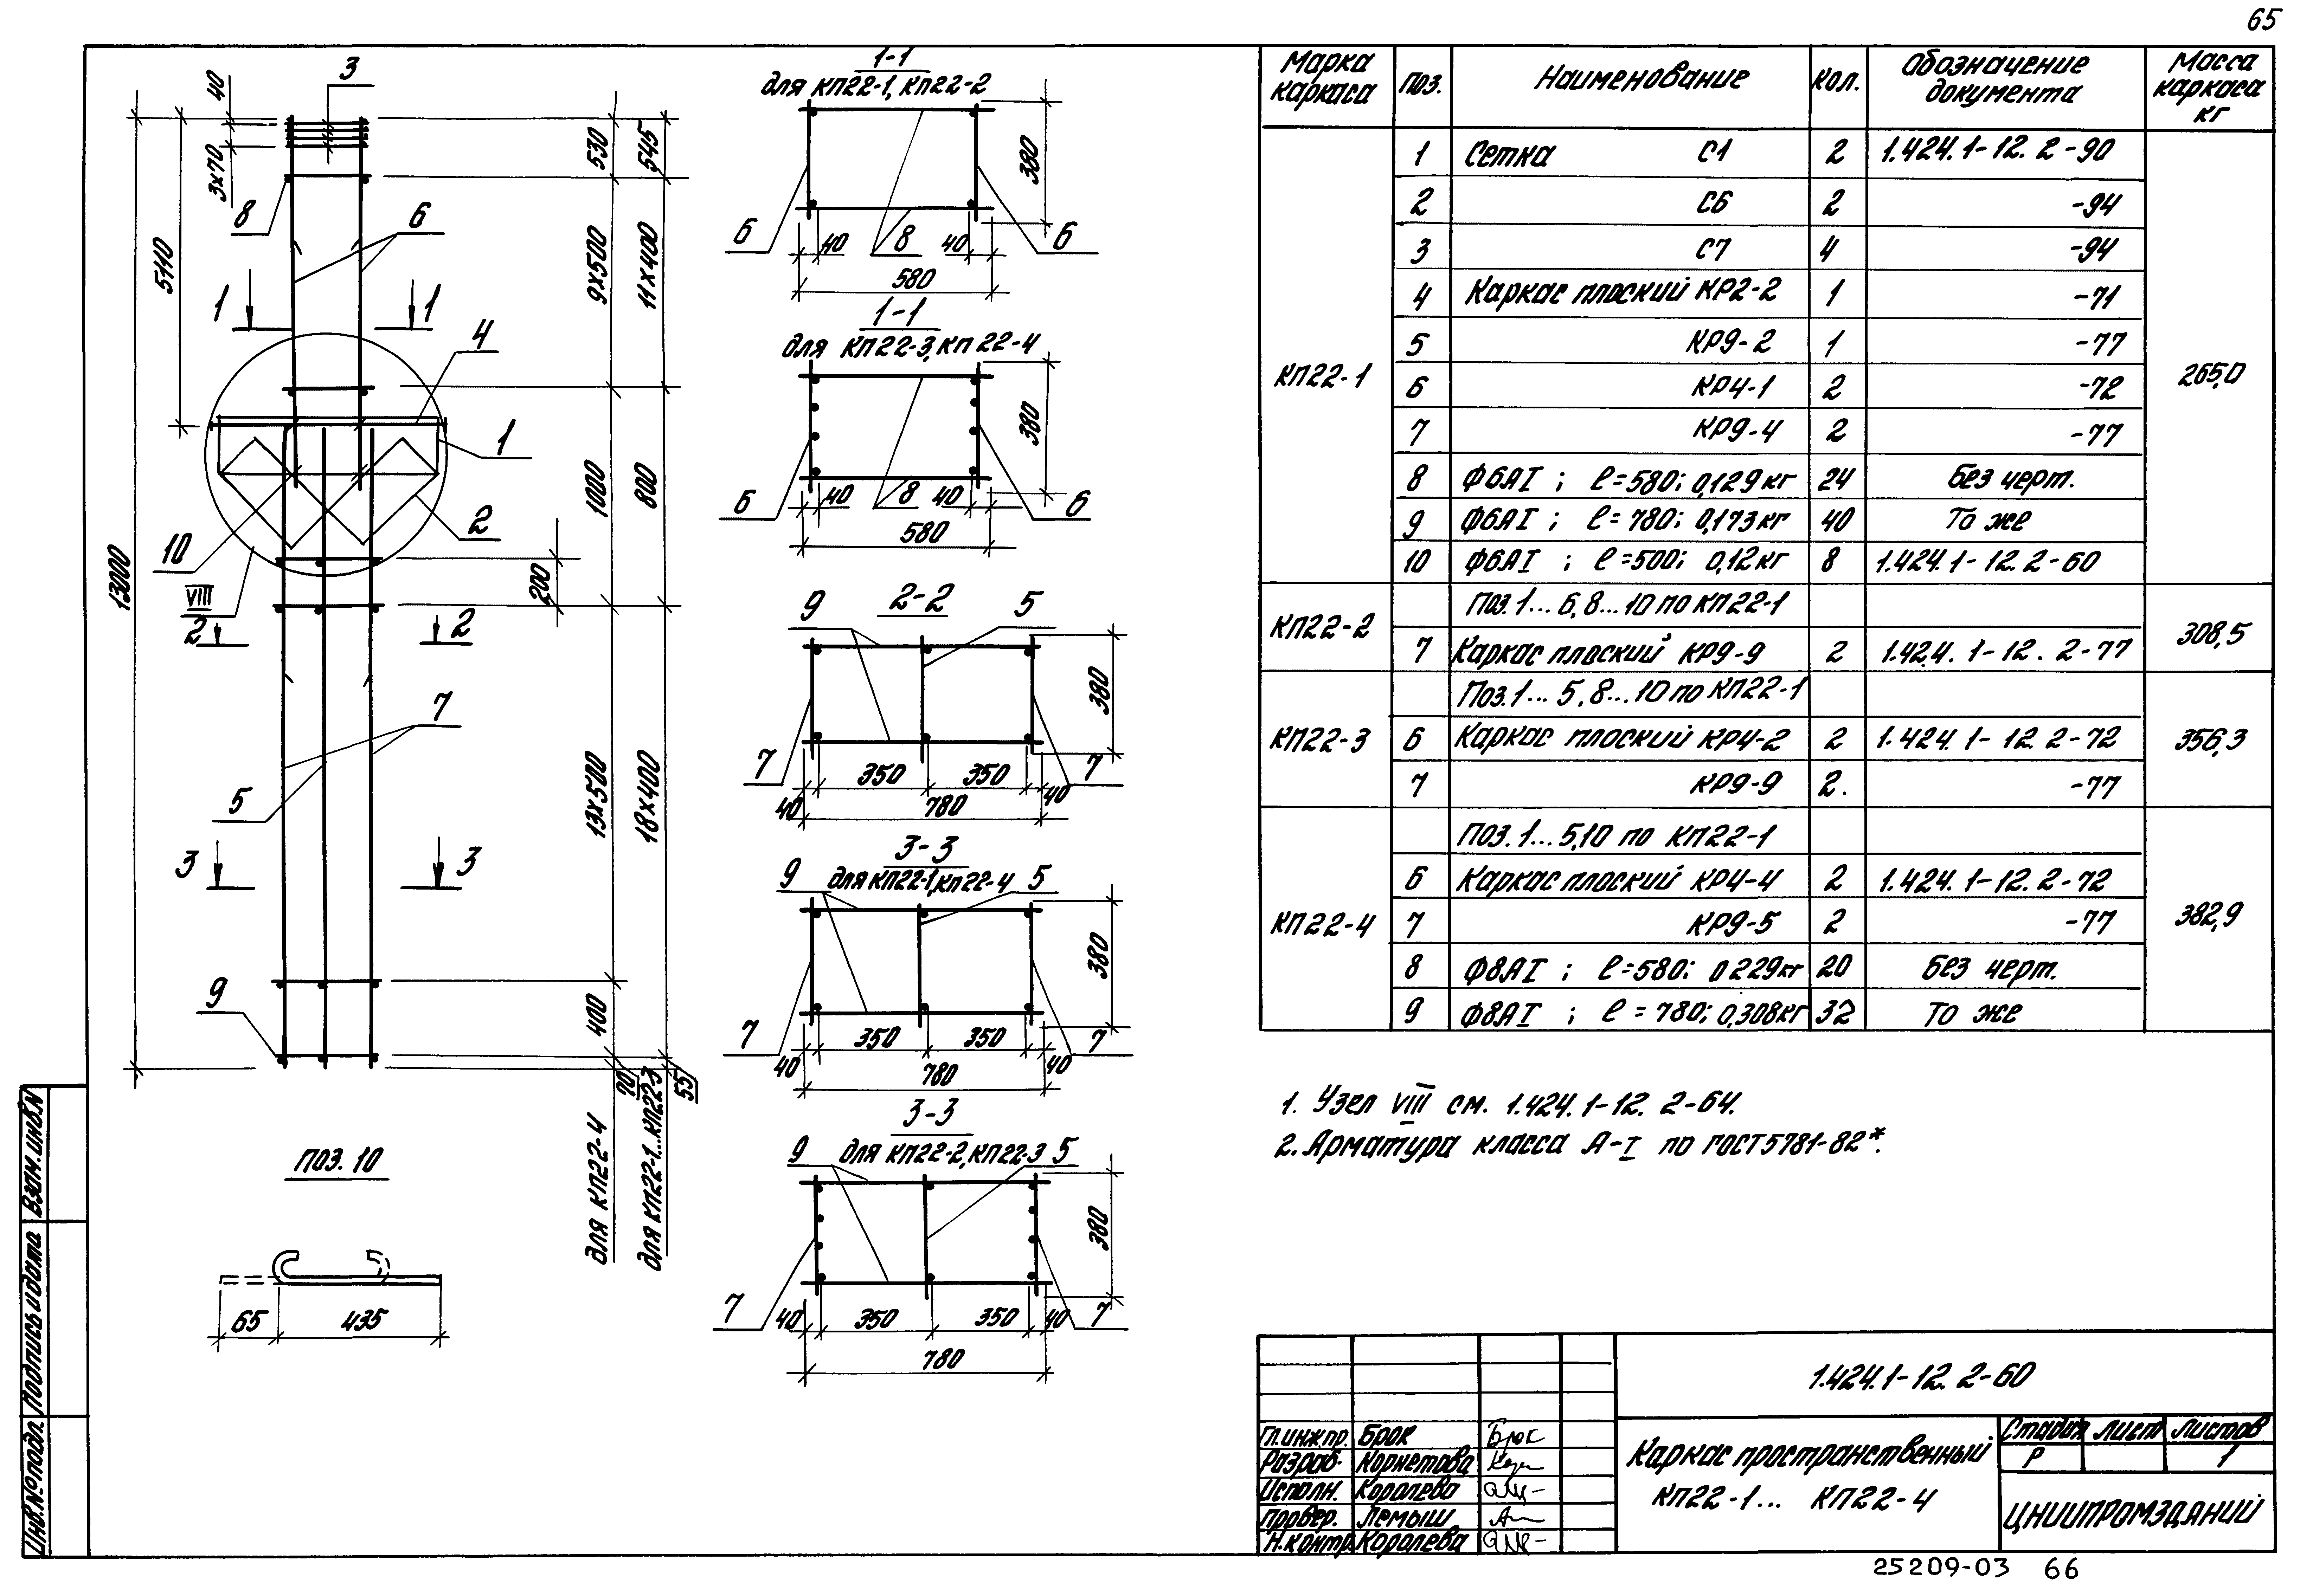 65
3
40
3х70
8
6
5110
1
1
4
1
2
10
VIII
200
2
2
7
5
3
3
9
13000
530
545
9х500
11х400
1000
800
13х500
18х400
400
70
55
для КП22-4
для КП22-1...КП22-3
поз. 10
65
435
1-1
для КП22-1, КП22-2
380
6
40
8
40
6
580
1-1
для КП22-3, КП22-4
380
6
40
8
40
6
580
9
2-2
5
380
7
350
350
7
40
780
40
3-3
9
для КП22-1, КП22-4
5
380
7
350
350
7
40
780
40
3-3
9
для КП22-2, КП22-3
5
380
7
40
350
350
40
7
780
Марка каркаса
Поз.
Наименование
Кол.
Обозначение документа
Масса каркаса кг
КП22-1
265,0
1 Сетка С1 2 1.424.1-12. 2-90
2 С6 2 -94
3 С7 4 -94
4 Каркас плоский КР2-2 1 -71
5 КР9-2 1 -77
6 КР4-1 2 -72
7 КР9-4 2 -77
8 Ф6АI ; ℓ=580; 0,129кг 24 Без черт.
9 Ф6АI ; ℓ=780; 0,173кг 40 То же
10 Ф6АI ; ℓ=500; 0,12кг 8 1.424.1-12. 2-60
КП22-2
308,5
Поз. 1... 6, 8... 10 по КП22-1
7 Каркас плоский КР9-9 2 1.424. 1-12. 2-77
КП22-3
356,3
Поз. 1... 5, 8... 10 по КП22-1
6 Каркас плоский КР4-2 2 1.424. 1-12. 2-72
7 КР9-9 2. -77
КП22-4
382,9
Поз. 1... 5,10 по КП22-1
6 Каркас плоский КР4-4 2 1.424. 1-12. 2-72
7 КР9-5 2 -77
8 Ф8АI ; ℓ=580; 0229кг 20 Без черт.
9 Ф8АI ; ℓ=780; 0,308кг 32 То же
1. Узел VIII см. 1.424.1-12. 2-64.
2. Арматура класса А-I по ГОСТ 5781-82*.
1.424.1-12. 2-60
Гл.инж.пр. Брок Брок
Разраб. Корнетова
Исполн. Королева
Провер. Лемыш
Н.контр. Королева
Каркас пространственный
КП22-1... КП22-4
Стадия Лист Листов
Р 1
ЦНИИПРОМЗДАНИЙ
Взам.инв.N
Подпись и дата
Инв.№ подл.
25209-03 66